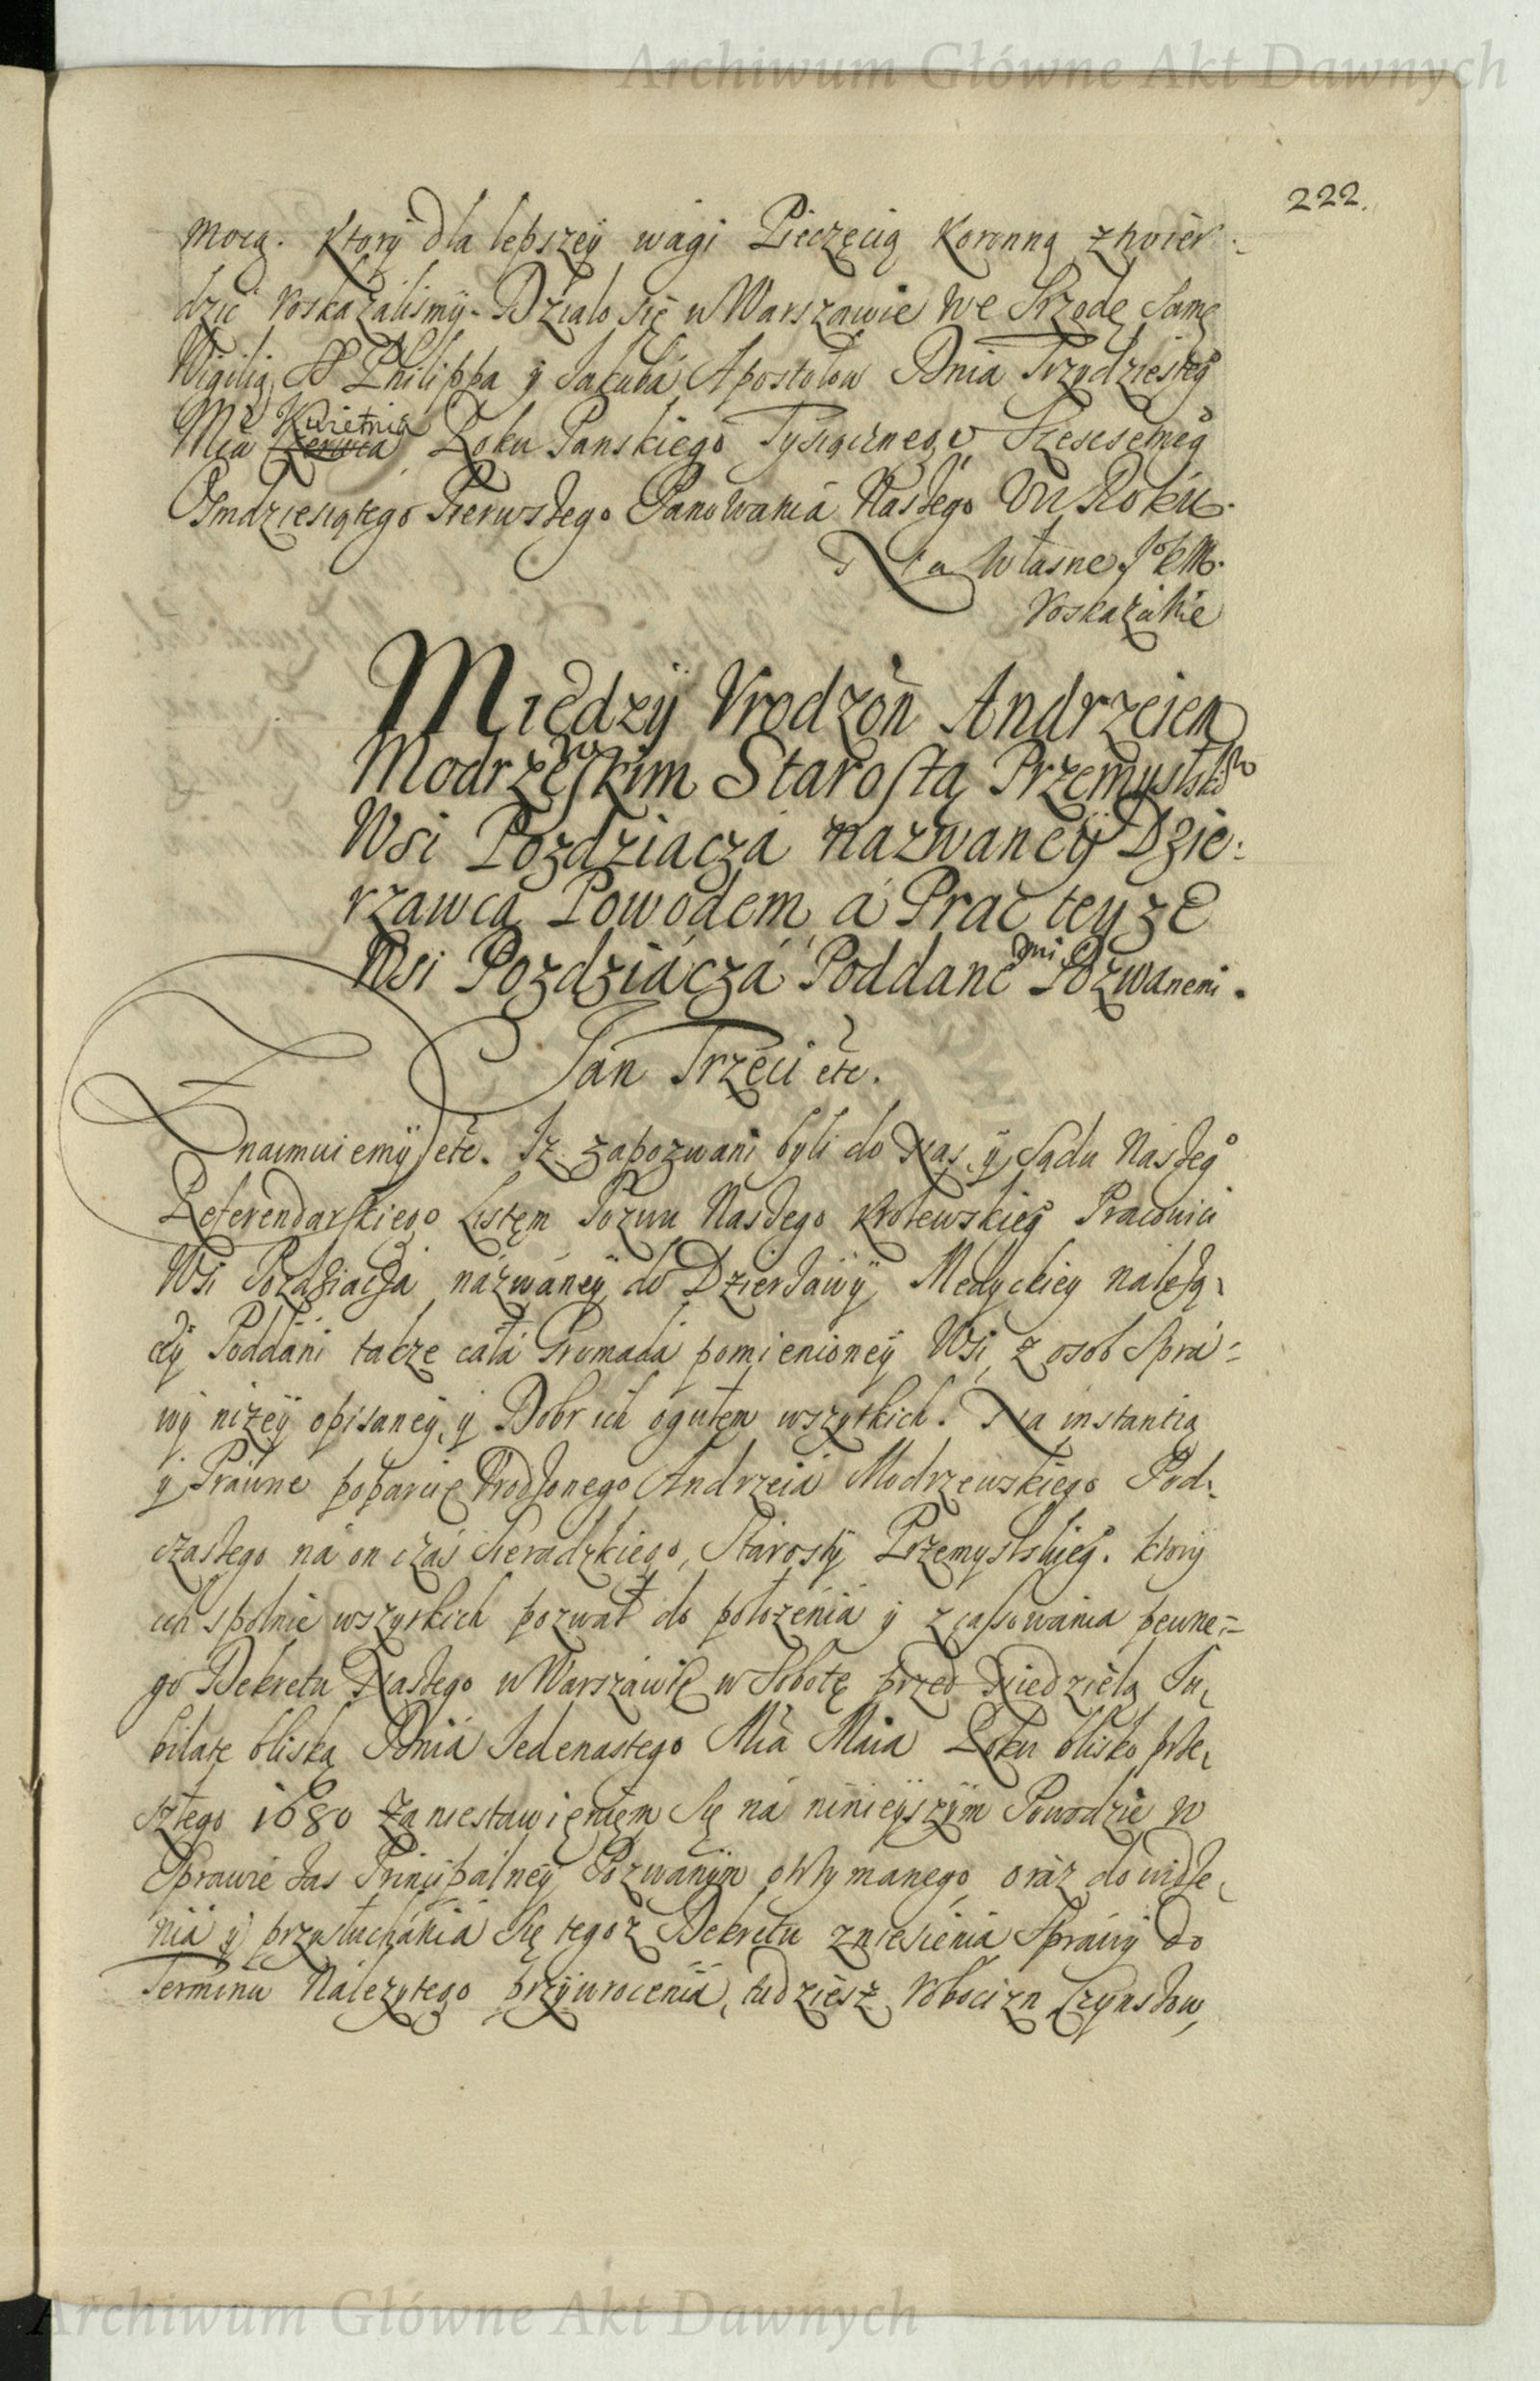 Archiwum Główne Akt Dawnych
222.
mocą. Ktory dla lepszey wagi Pieczęcią Koronną ztwier:
dzić roskazalismy. Działo się w Warszawie we Srzodę Samę
Wigilią SS Philippa y Jakuba Apostołow Dnia Trzydziesteg°
Mca Czerwca Kwietnia Roku Panskiego Tysiącznego Szescsetneg°
Osmdziesiątego Pierwszego Panowania Naszego VII Roku.
Na Własne JKM.
Roskazanie
Między Vrodzon Andrzeiem
Modrzewskim Starostą Przemyslsko
Wsi Pozdziacza nazwaney Dzie:
rzawcą Powodem, á Prac teyze
Wsi Pozdziácza Poddanemi Pozwanemi.
Jan Trzeci etc.
Znaimuiemy etc. Iz zapozwani byli do Nas y Sądu Naszeg°
Referendarskiego Listem Pozwu Naszego Krolewskieg° Pracowici
Wsi Pozdziacza názwáney do Dzierzawy Medyckiey należą:
cy Poddáni takze cáłá Gromadá pomienioney Wsi, z osob Sprá=
wy niżey opisaney, y Dobr ich ogułem wszytkich. Na instantią
y Práwne poparcie Vrodzonego Andrzeiá Modrzewskiego Pod:
czaszego ná on czás Sieradzkiego, Stárosty Przemyslskieg°. ktory
ich spolnie wszytkich pozwał do położenia y zcassowania pewne=
go Dekretu Naszego w Warszáwie w Sobotę przed Niedzielą Iu:
bilate bliską Dniá Jedenastego Mca Maia Roku blisko prze:
szłego 1680 za niestawieniem Się ná ninieyszym Powodzie w
Sprawie zas Principálney Pozwanym otrzymanego oraz do widze:
nia y przysłuchánia Się tegoż Dekretu zniesienia Spráwy do
Terminu Należytego przywrocenia, tudziesz Robocizn Czynszow,
Archiwum Główne Akt Dawnych